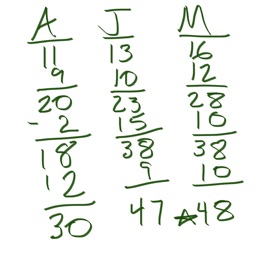 A J M
11 13 16
9 10 12
20 23 28
- 2 15 10
18 38 38
12 9 10
30 47 ★48